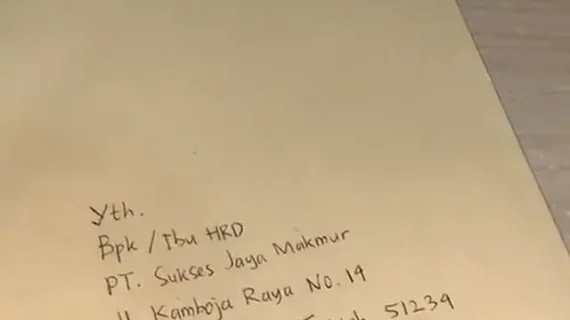 Yth.
Bpk / Ibu HRD
PT. Sukses Jaya Makmur
Kamboja Raya No. 19
51234